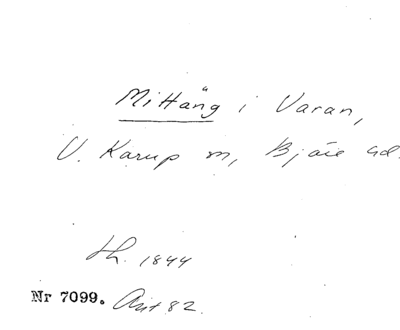 Mittäng i Varan,
V. Karup sn, Bjäre hd.
th. 1844
Nr 7099. Avt 82.